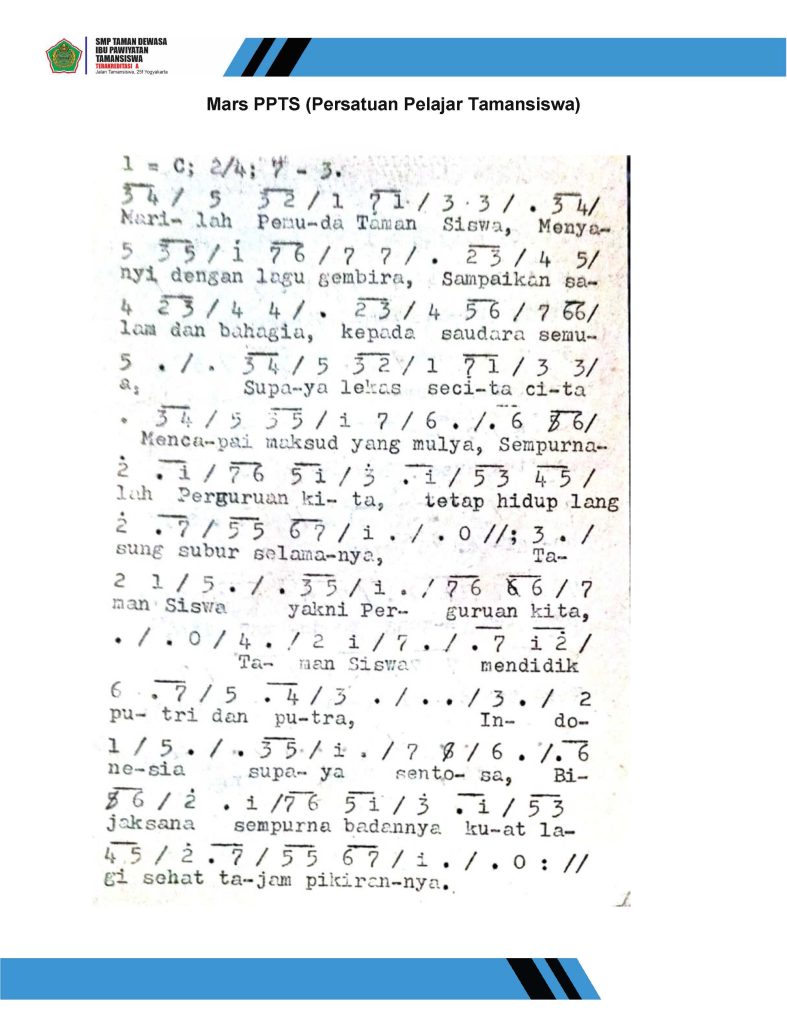 SMP TAMAN DEWASA
IBU PAWIYATAN
TAMANSISWA
TERAKREDITASI A
Jalan Tamansiswa, 25f Yogyakarta
Mars PPTS (Persatuan Pelajar Tamansiswa)
1 = C; 2/4; 7 - 3.
3 4 / 5 3 2 / 1 7 1 / 3 3 / . 3 4/
Mari- lah Pemu-da Taman Siswa, Menya-
5 3 5 / i 7 6 / 7 7 / . 2 3 / 4 5/
nyi dengan lagu gembira, Sampaikan sa-
4 2 3 / 4 4/ . 2 3 / 4 5 6 / 7 66/
lam dan bahagia, kepada saudara semu-
5 . / . 3 4 / 5 3 2 / 1 7 1 / 3 3/
a, Supa-ya lekas seci-ta ci-ta
. 3 4 / 5 3 5 / i 7 / 6 . /. 6 6/
Menca-pai maksud yang mulya, Sempurna-
2 . i / 7 6 5 i / 3 . i / 5 3 4 5 /
lah Perguruan ki- ta, tetap hidup lang
2 . 7 / 5 5 6 7 / i . / . 0 //; 3 . /
sung subur selama-nya, Ta-
2 1 / 5 . / . 3 5 / i . / 7 6 6 / 7
man Siswa yakni Per- guruan kita,
. / . 0 / 4 . / 2 i / 7 . / . 7 i 2 /
Ta- man Siswa mendidik
6 . 7 / 5 . 4 / 3 . / . . / 3 . / 2
pu- tri dan pu-tra, In- do-
1 / 5 . / . 3 5 / i . / 7 / 6 . /. 6
ne-sia supa- ya sento- sa, Bi-
6 / 2 . i /7 6 5 i / 3 . i / 5 3
jaksana sempurna badannya ku-at la-
4 5 / 2 . 7 / 5 5 6 7 / i . / . 0 : //
gi sehat ta-jam pikiran-nya.